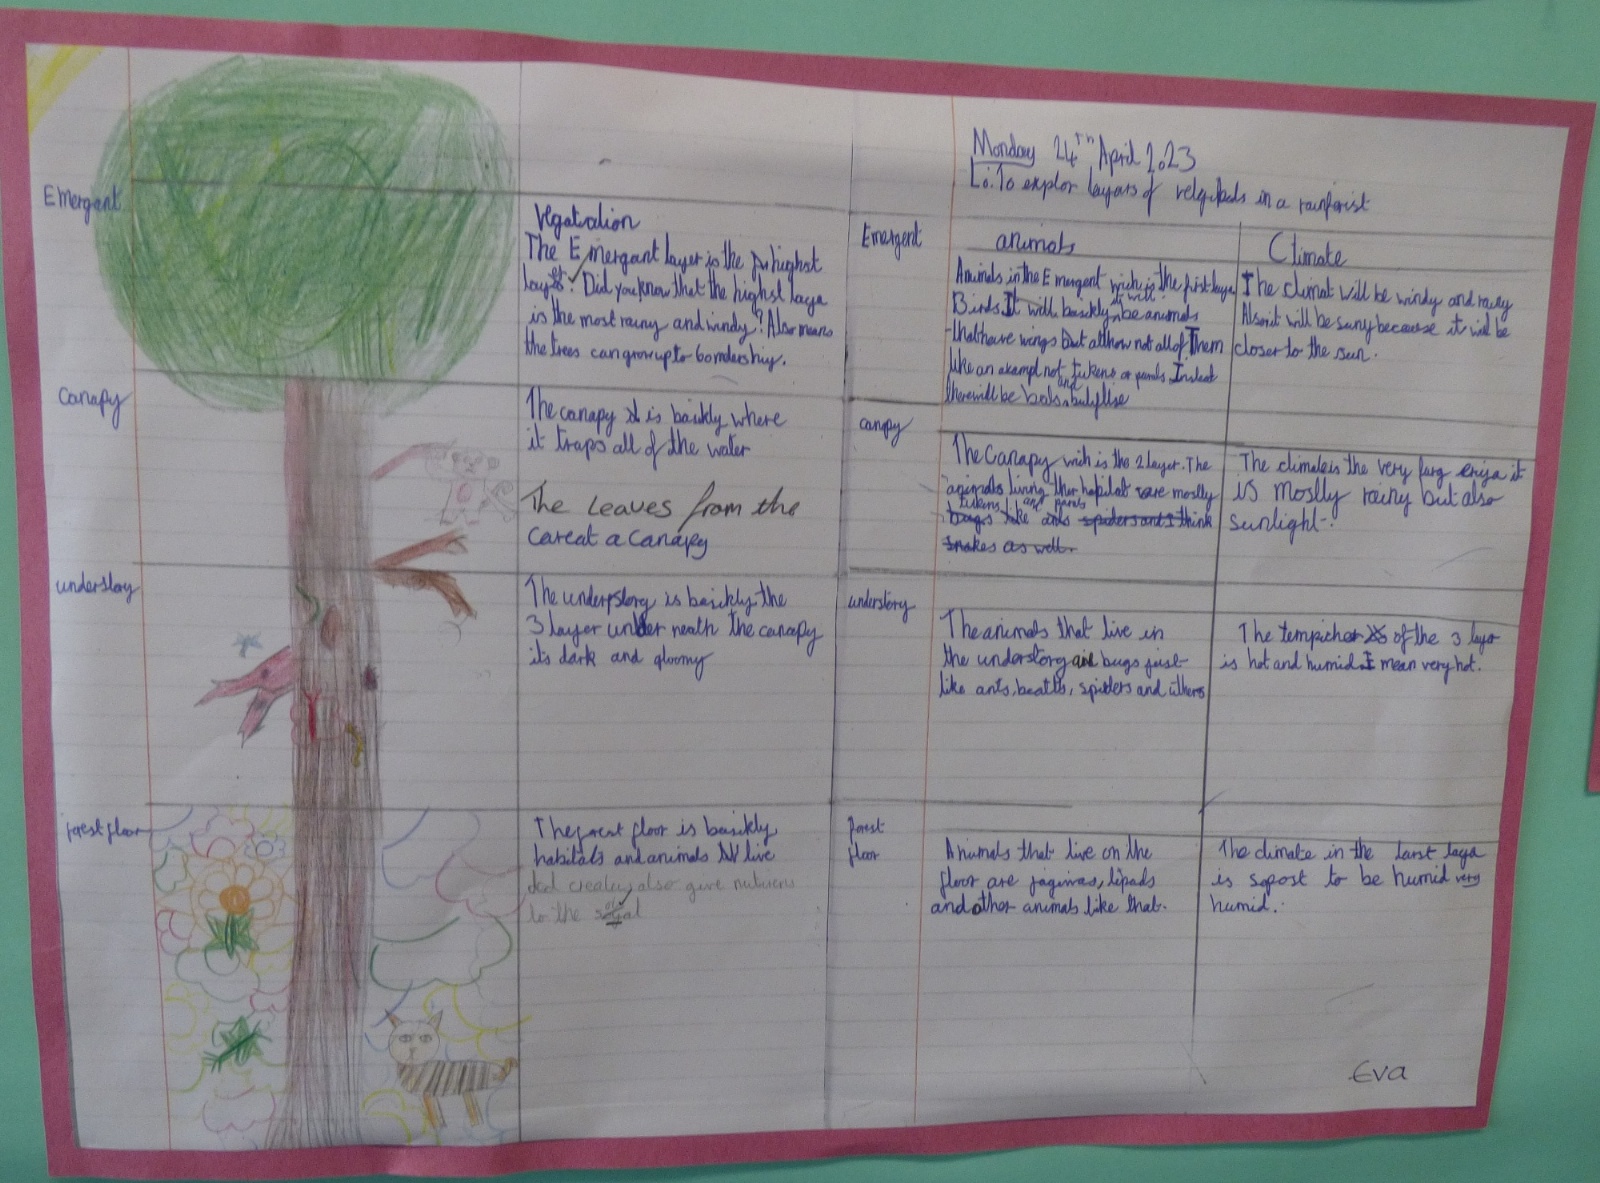 Monday 24th April 2023
L.o: To explor layers of in a rainforist
Emergant
Vegatation
The Emergant layer is the highst
layer. Did you know that the highst laya
is the most rainy and windy? Also means
the trees can grow up to 60
Canapy
The canapy is baickly where
it traps all of the water
The leaves from the
careat a canapy
understory
The understory is baickly the
3 layer under neath the canapy
it's dark and gloomy
forest floor
The forest floor is basickly
habitats and animals live
also give
to the
Emergent
animals
Animals in the Emergant wich is the first laya
Birds It will basickly be animals
that have wings but not all of Them
like an exampl not tukens or parots Instead
there will be
Climate
The climat will be windy and rainy
Also it will be suny because it will be
closer to the sun.
canpy
The Canapy wich is the 2 layer. The
animals living ther habitat are mostly
tukens and parots
bugs like ants spiders and I think
snakes as well.
The climate is the very it
is mostly rainy but also
sunlight.
understory
The animals that live in
the understory are bugs just
like ants, beatls, spiders and
The of the 3 layer
is hot and humid I mean very hot.
forest
floor
Animals that live on the
floor are
and other animals like that.
The climate in the last laya
is sopost to be humid very
humid.
Eva